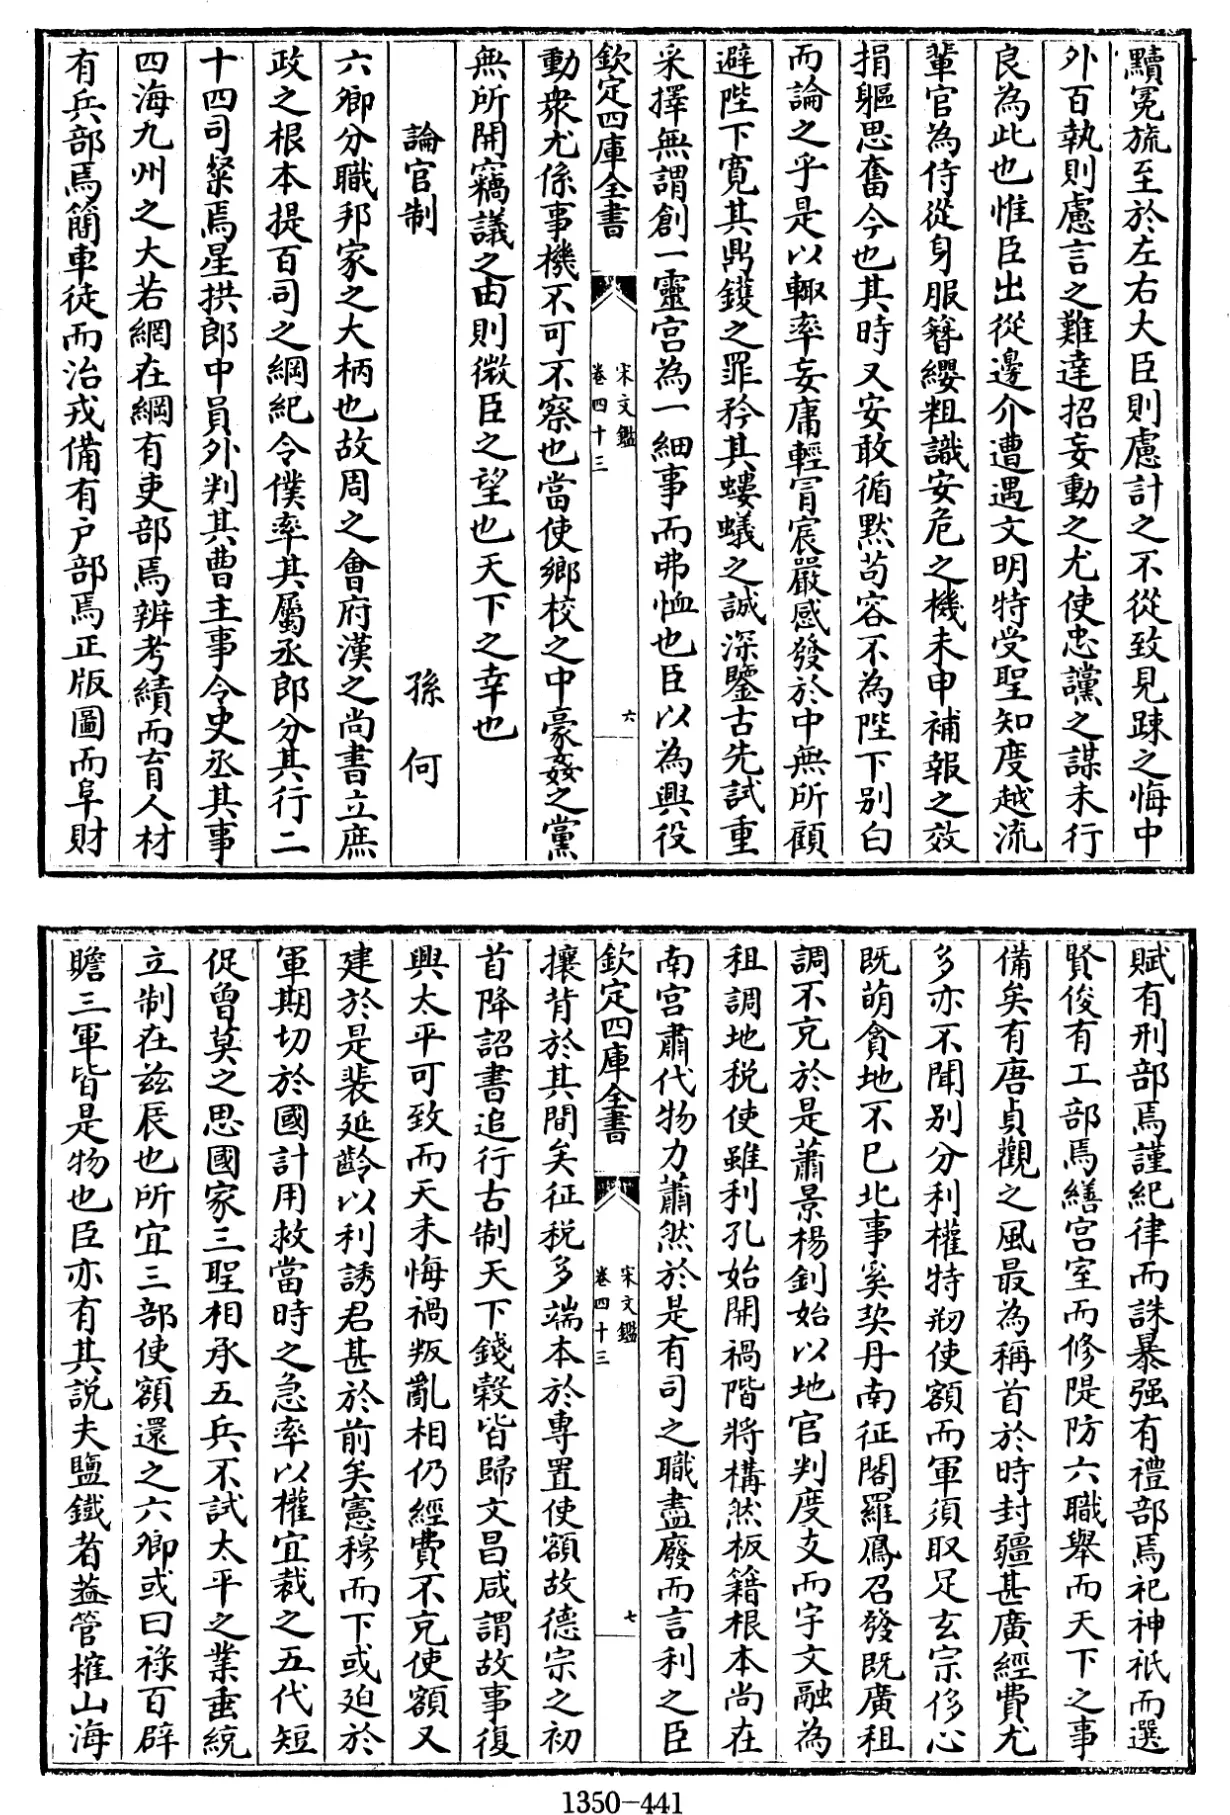 黷冕旒至於左右大臣則慮計之不從致見踈之悔中
外百執則慮言之難達招妄動之尤使忠讜之謀未行
良為此也惟臣出從邊介遭遇文明特受聖知度越流
輩官為侍從身服簪纓粗識安危之機未申補報之效
捐軀思奮今也其時又安敢循黙苟容不為陛下别白
而論之乎是以輙率妄庸輕冒宸嚴感發於中無所顧
避陛下寛其鼎鑊之罪矜其螻蟻之誠深鑒古先試重
采擇無謂創一靈宮為一細事而弗恤也臣以為興役
欽定四庫全書
宋文鑑
卷四十三
六
動衆尤係事機不可不察也當使鄉校之中豪姦之黨
無所開竊議之由則微臣之望也天下之幸也
論官制 孫何
六卿分職邦家之大柄也故周之會府漢之尚書立庶
政之根本提百司之綱紀令僕率其屬丞郎分其行二
十四司粲焉星拱郎中員外判其曹主事令史丞其事
四海九州之大若網在綱有吏部焉辨考績而育人材
有兵部焉簡車徒而治戎備有户部焉正版圖而阜財
賦有刑部焉謹紀律而誅暴强有禮部焉祀神祇而選
賢俊有工部焉繕宮室而修隄防六職舉而天下之事
備矣有唐貞觀之風最為稱首於時封疆甚廣經費尤
多亦不聞别分利權特剏使額而軍須取足玄宗侈心
既萌貪地不已北事奚契丹南征閤羅鳳召發既廣租
調不充於是蕭景楊釗始以地官判度支而宇文融為
租調地税使雖利孔始開禍階將構然板籍根本尚在
南宮肅代物力蕭然於是有司之職盡廢而言利之臣
欽定四庫全書
宋文鑑
卷四十三
七
攘背於其間矣征税多端本於專置使額故德宗之初
首降詔書追行古制天下錢穀皆歸文昌咸謂故事復
興太平可致而天未悔禍叛亂相仍經費不充使額又
建於是裴延齡以利誘君甚於前矣憲穆而下或迫於
軍期切於國計用救當時之急率以權宜裁之五代短
促曾莫之思國家三聖相承五兵不試太平之業垂統
立制在兹辰也所宜三部使額還之六卿或曰祿百辟
贍三軍皆是物也臣亦有其説夫鹽鐵者葢管榷山海
1350-441